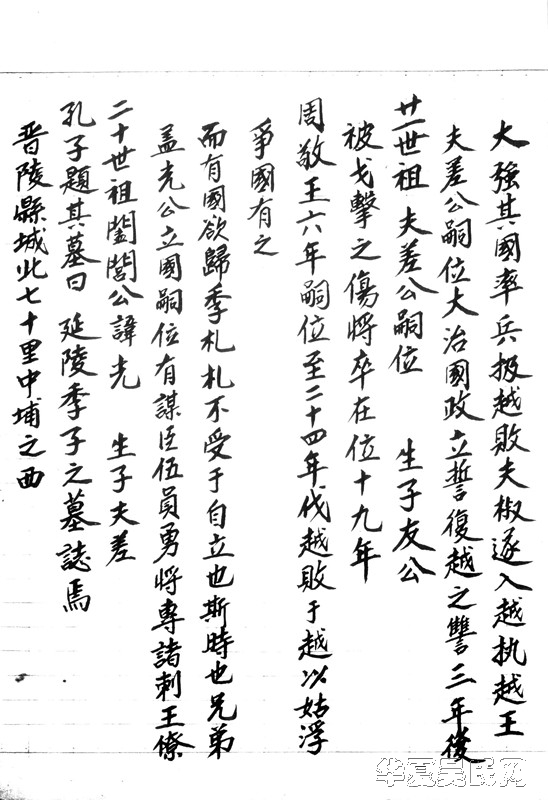 晋陵縣城北七十里中埔之西
孔子題其墓曰 延陵季子之墓誌焉
二十世祖闔閭公諱光 生子夫差
盖光公立國嗣位有謀臣伍員勇將專諸刺王僚
而有國欲歸季札札不受于自立也斯時也兄弟
爭國有之
周敬王六年嗣位至二十四年伐越敗于越以姑浮
被戈擊之傷將卒在位十九年
廿一世祖夫差公嗣位 生子友公
夫差公嗣位大治國政立誓復越之讐三年後
大強其國率兵扱越敗夫椒遂入越执越王
华夏吴氏网